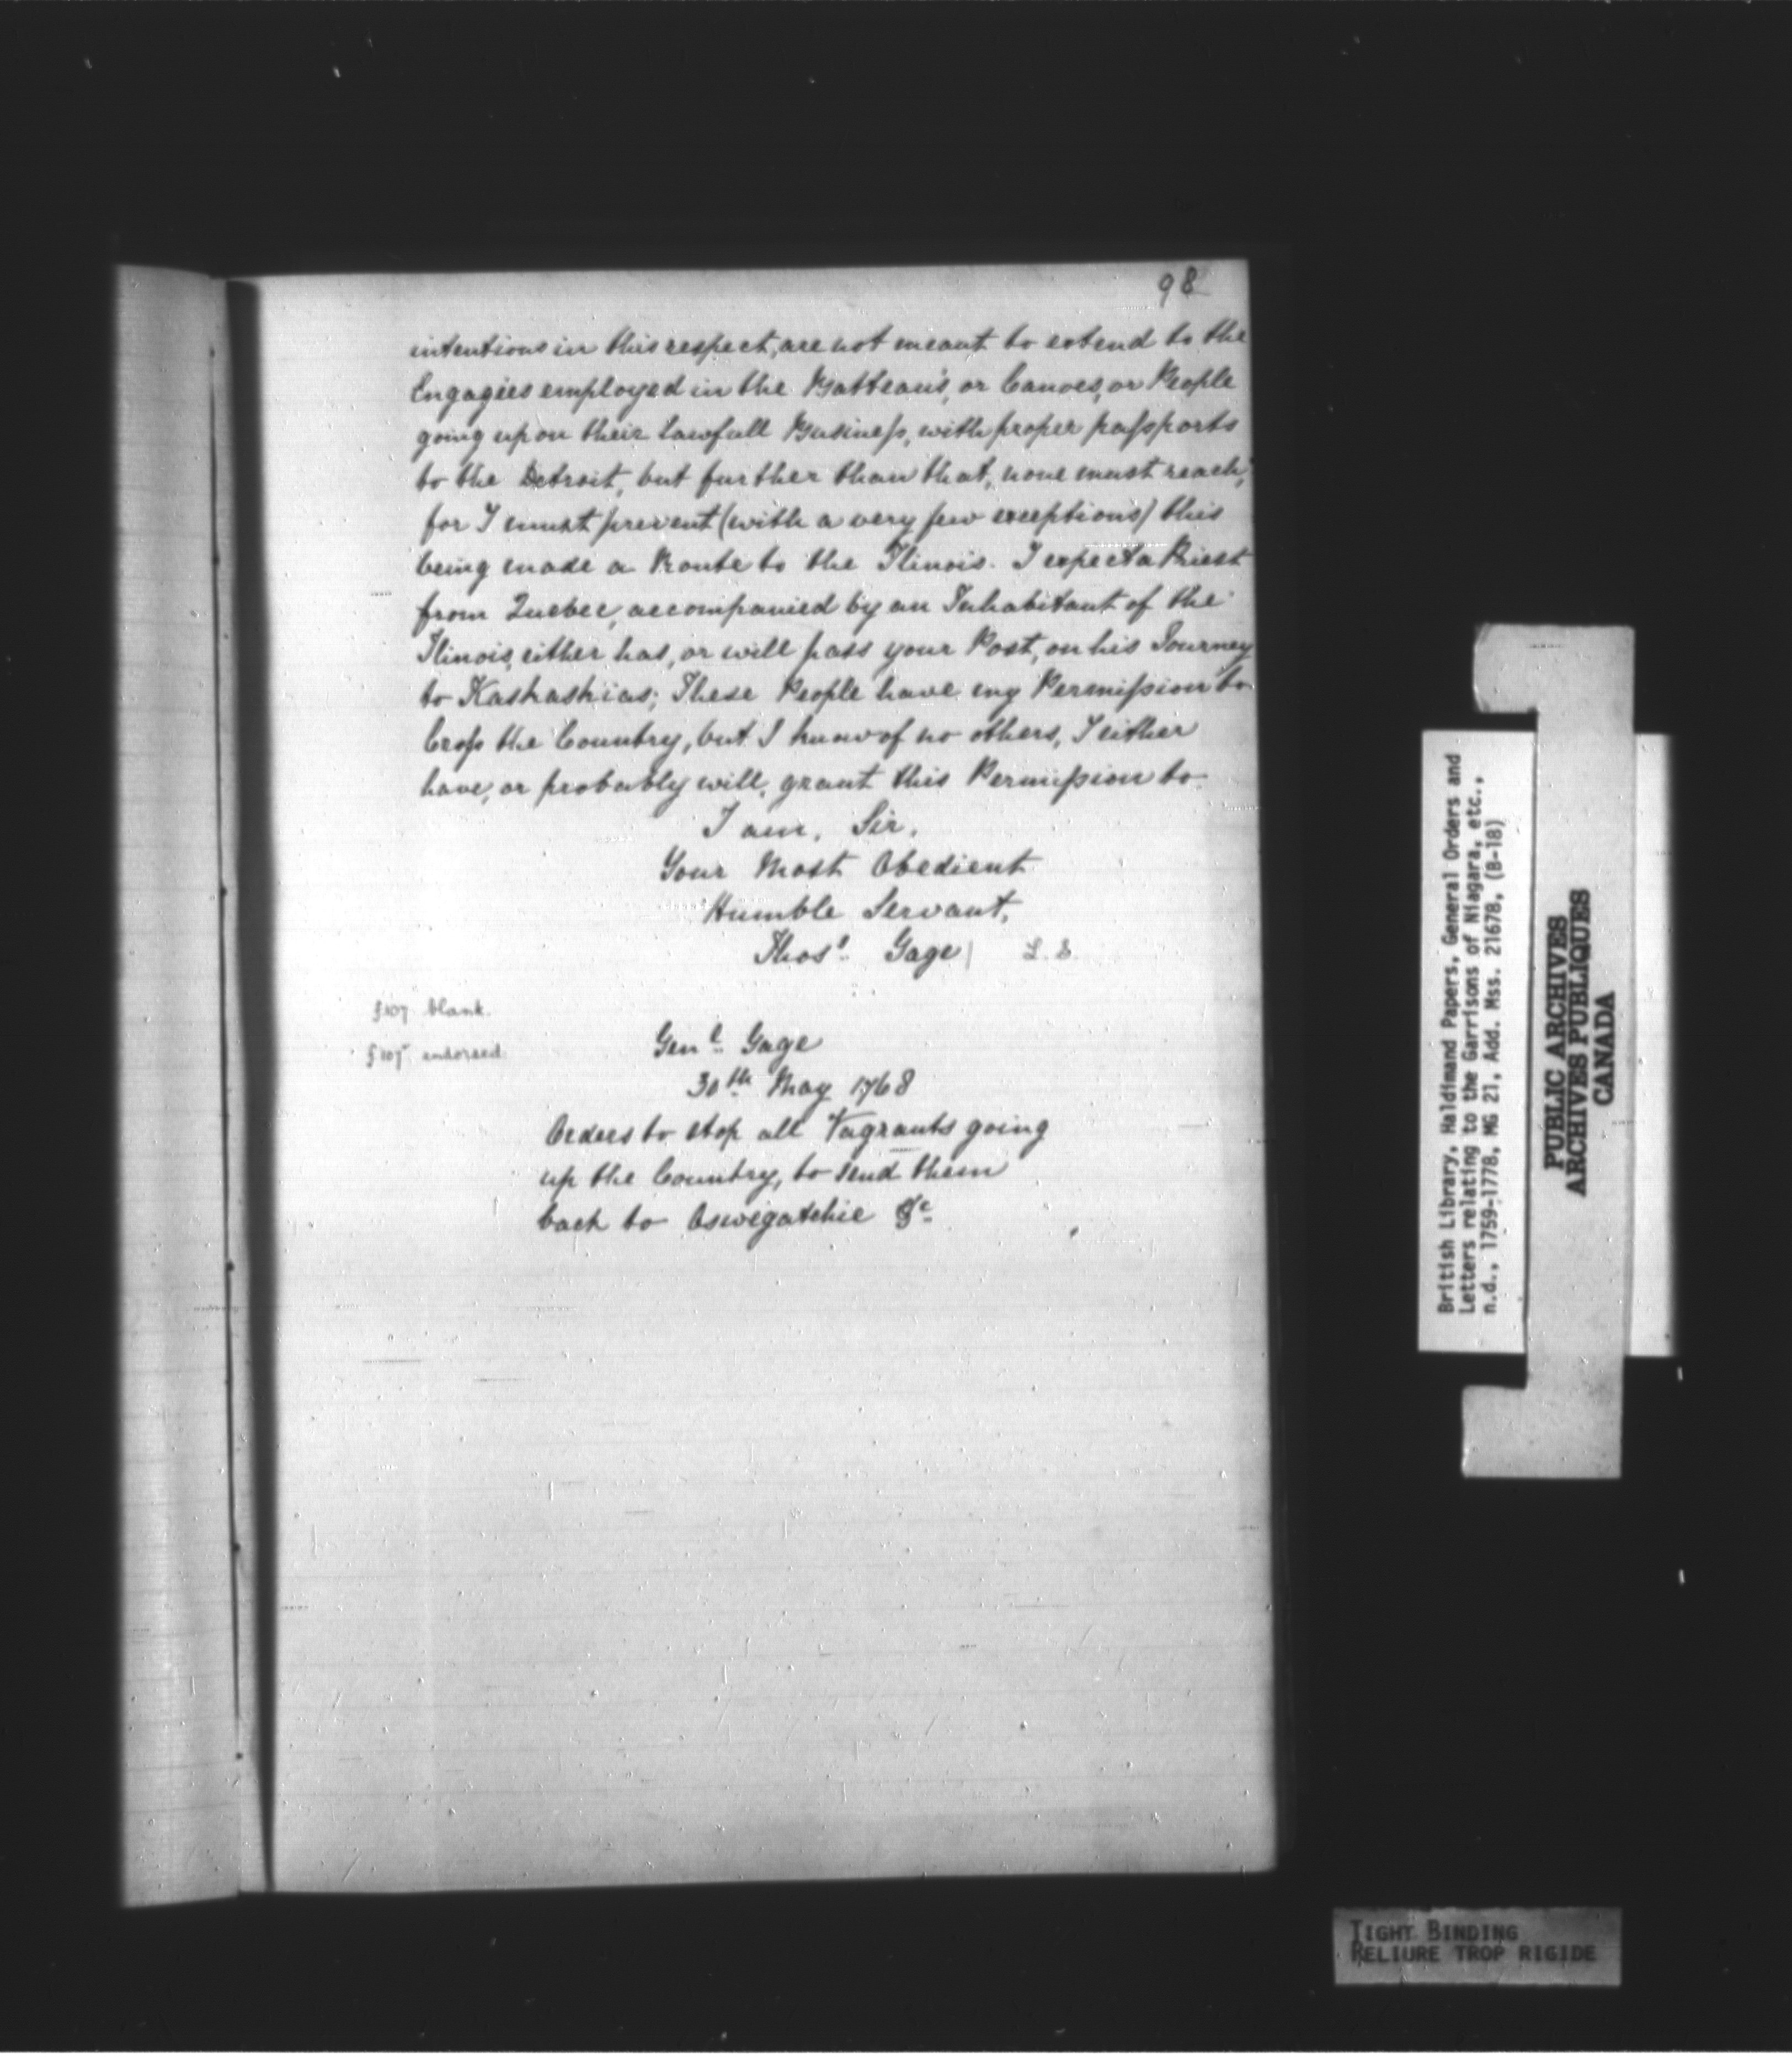 98
intentions in this respect, are not meant to extend to the
Engagées employed in the Batteau's, or Canoes, or People
going up on their Lawfull Business, with proper passports
to the Detroit, but further than that, none must reach,
for I must prevent (with a very few exceptions) this
being made a Route to the Ilinois. I expect a Priest
from Quebec, accompanied by an Inhabitant of the
Ilinois, either has, or will pass your Post, on his Journey
to Kaskaskias; These People have my Permission to
Cross the Country, but I know of no others, I either
have, or probably will, grant this Permission to.
I am, Sir,
Your Most Obedient
Humble Servant,
Thos. Gage
L. S.
f107 blank.
endorsed.
Genl. Gage
30th May 1768
Orders to stop all Vagrants going
up the Country, to send them
back to Oswegatchie &c
British Library, Haldimand Papers, General Orders and
Letters relating to the Garrisons of Niagara, etc.,
n.d., 1759-1778, MG 21, Add. Mss. 21678, (B-18)
PUBLIC ARCHIVES
ARCHIVES PUBLIQUES
CANADA
TIGHT BINDING
RELIURE TROP RIGIDE